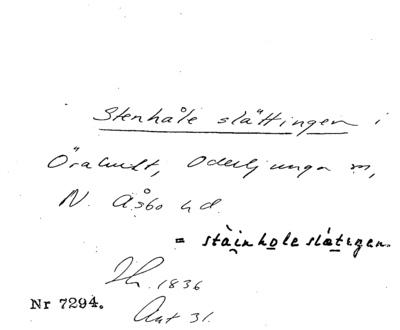 Stenhåle slättingen i
Öralund, Oderljunga sn,
N. Åsbo hd.
= stàinholeslätigen.
Th. 1836
Nr 7294.
Aut 31.